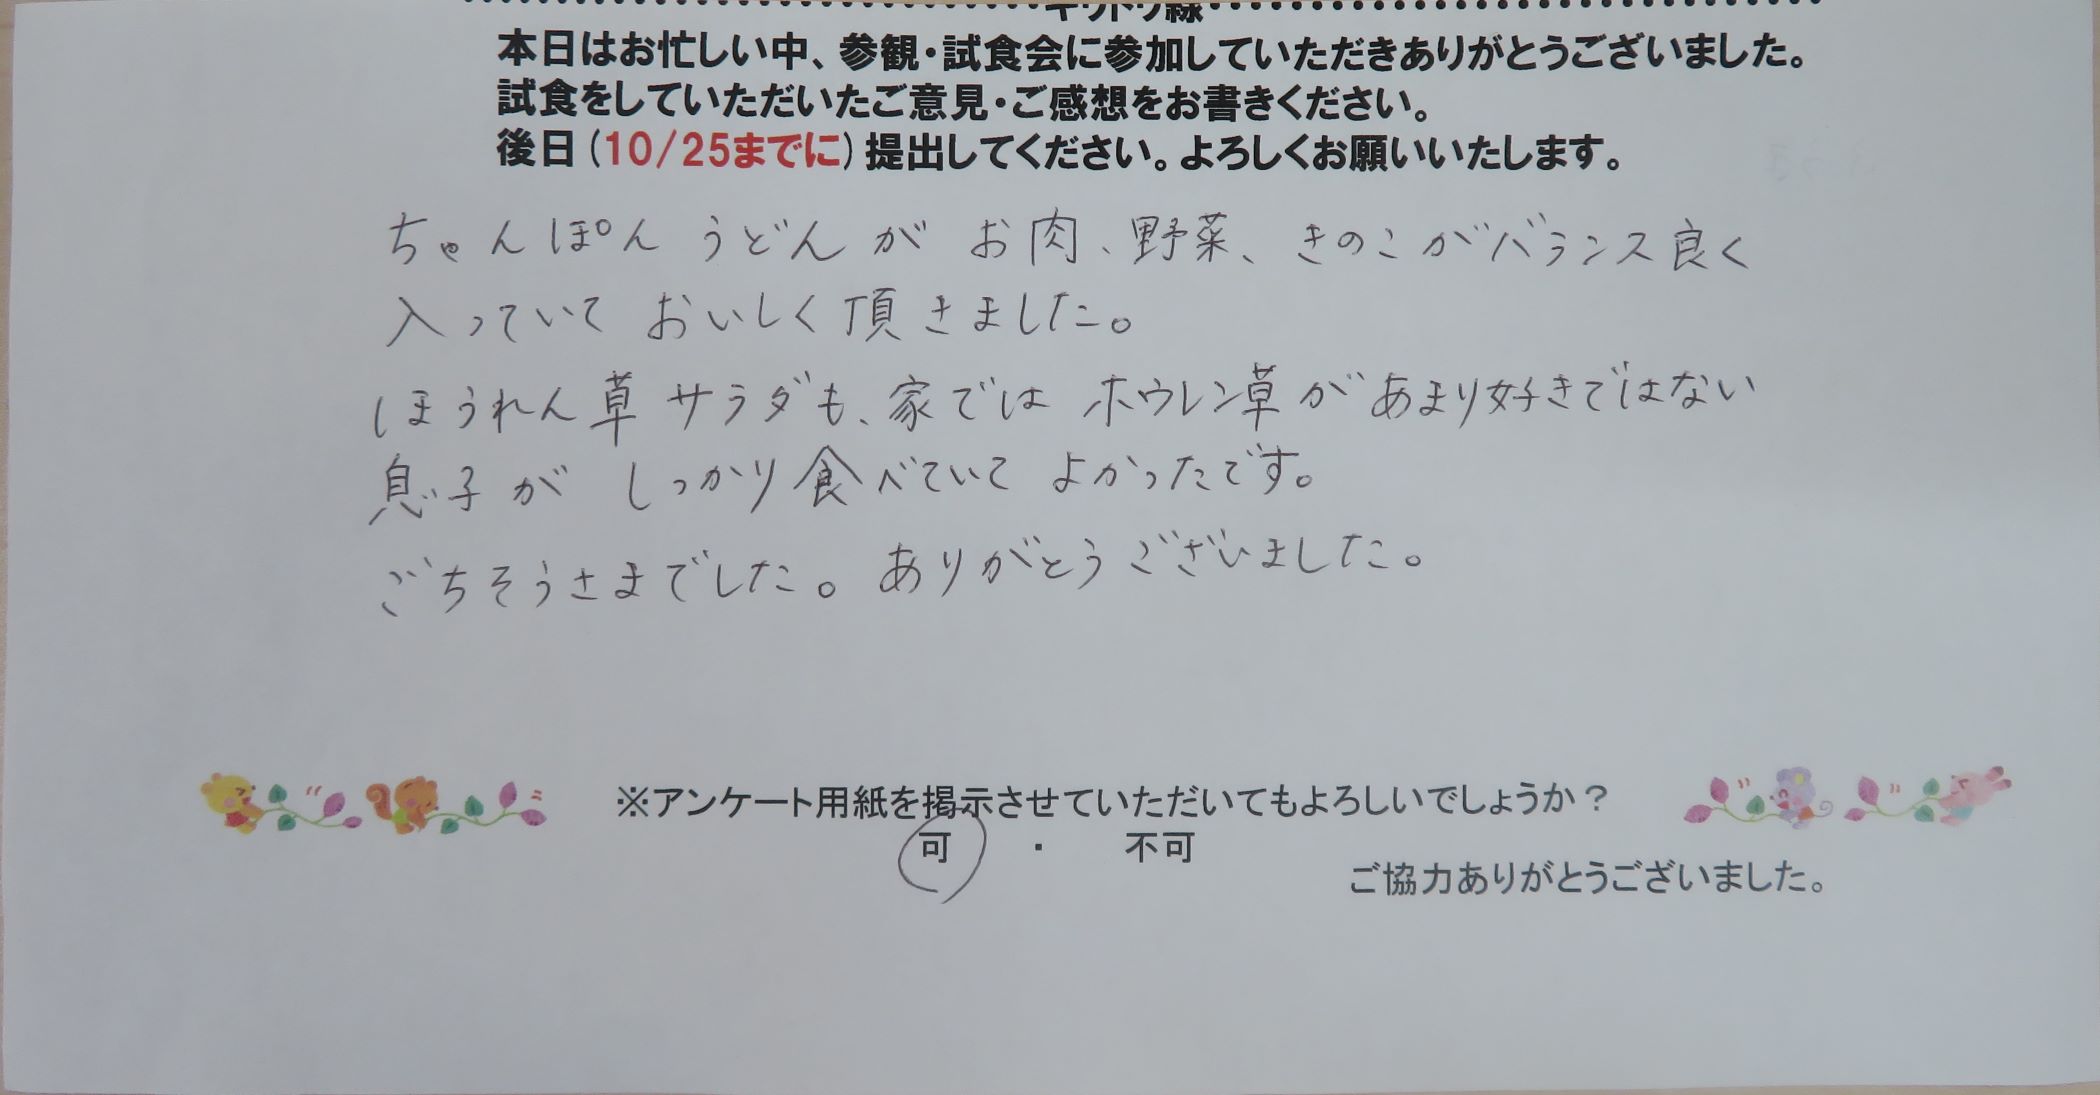 キリトリ線
本日はお忙しい中、参観・試食会に参加していただきありがとうございました。
試食をしていただいたご意見・ご感想をお書きください。
後日(10/25までに)提出してください。よろしくお願いいたします。
ちゃんぽんうどんが お肉、野菜、きのこがバランス良く
入っていて おいしく頂きました。
ほうれん草サラダも、家では ホウレン草があまり好きではない
息子が しっかり食べていて よかったです。
ごちそうさまでした。ありがとうございました。
※アンケート用紙を掲示させていただいてもよろしいでしょうか?
可 ・ 不可
ご協力ありがとうございました。